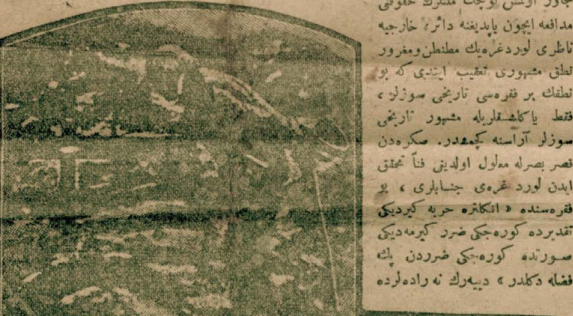 مدافعه ايچون ياپديغنه دائر، خارجيه
ناظرى لورد غره‌يك مطنطن ومغرور
نطق مشهورى تعقيب ايتدى كه بو
نطقك بر فقره‌سى تاريخى سوزلر،
فقط ياكلشلقلريله مشهور تاريخى
سوزلر آراسنه كچمشدر. سكره‌دن
قصر بصرله معلول اولديغى فناً تحقق
ايدن لورد غره‌ى جنابلرى، بو
فقره‌سنده « انكلتره حربه كيرديكى
تقديرده كوره‌جكى ضرر كيرمه‌ديكى
صورتده كوره‌جكى ضرردن پك
فضله دكلدر » ديه‌رك نه راده‌لرده